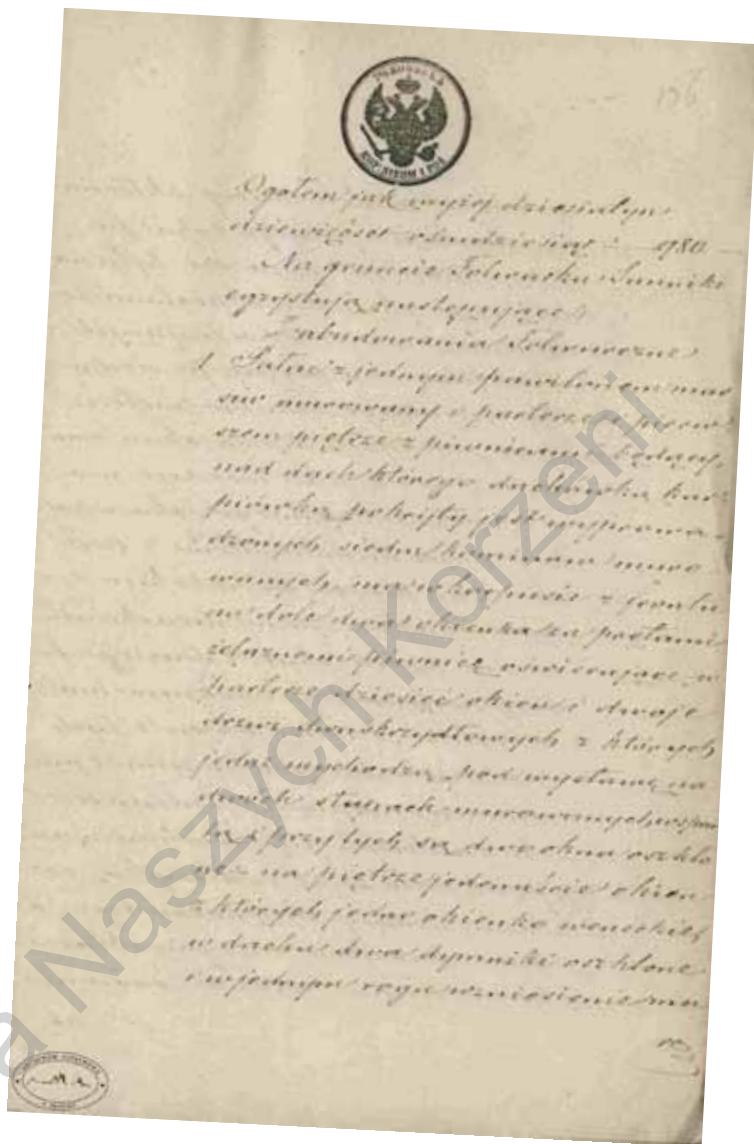 Ogołem jak wyżej dziesiatyn
dziewięćset ośmdziesiąt 980
Na gruncie Folwarku Sanniki
egzystują następujące
Zabudowania Folwarczne
1 Pałac z jednym pawilonem mas
siw murowany o parterze i pierw
szem piętrze z piwnicami będący,
nad dach którego dachówką kar
piówką pokryty jest wyprowa
dzonych siedm kominów muro
wanych, ma w korpusie z frontu
na dole dwa okienka za kratami
żelaznemi piwnice oświecające w
parterze dziesięć okien i dwoje
drzwi dwuskrzydłowych z których
jedne wychodzą pod wystawę na
dwóch słupach murowanych wspar
tą i przy tych są dwa okna oszklo
ne na piętrze jedenaście okien
z których jedno okienko weneckie,
w dachu dwa dymniki oszklone
i w jednym rogu wzniesienie mu
ro
Na Naszych Korzeni